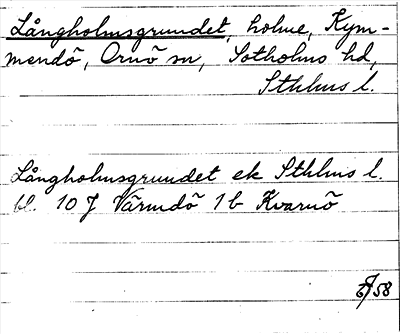 Långholmsgrundet, holme, Kym-
mendö, Ornö sn, Sotholms hd,
Sthlms l.
Långholmsgrundet ek Sthlms l.
bl. 10 J Värmdö 1b Kvarnö
58